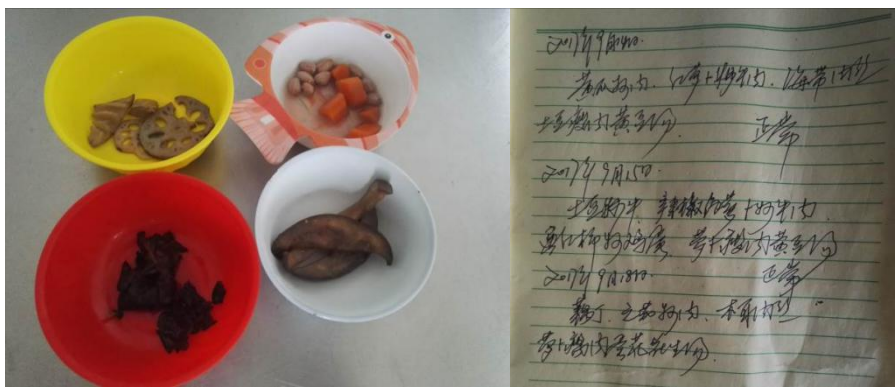 2017年9月14日.
黄瓜炒肉、红萝卜炒牛肉、海带肉丝
土豆瘦肉黄豆汤. 正常
2017年9月15日
土豆炒牛、辣椒白萝卜炒牛肉、
西红柿炒鸡蛋、萝卜瘦肉黄豆汤
2017年9月18日 正常
藕丁、立茄炒肉、木耳肉丝
萝卜瘦肉 花生汤.